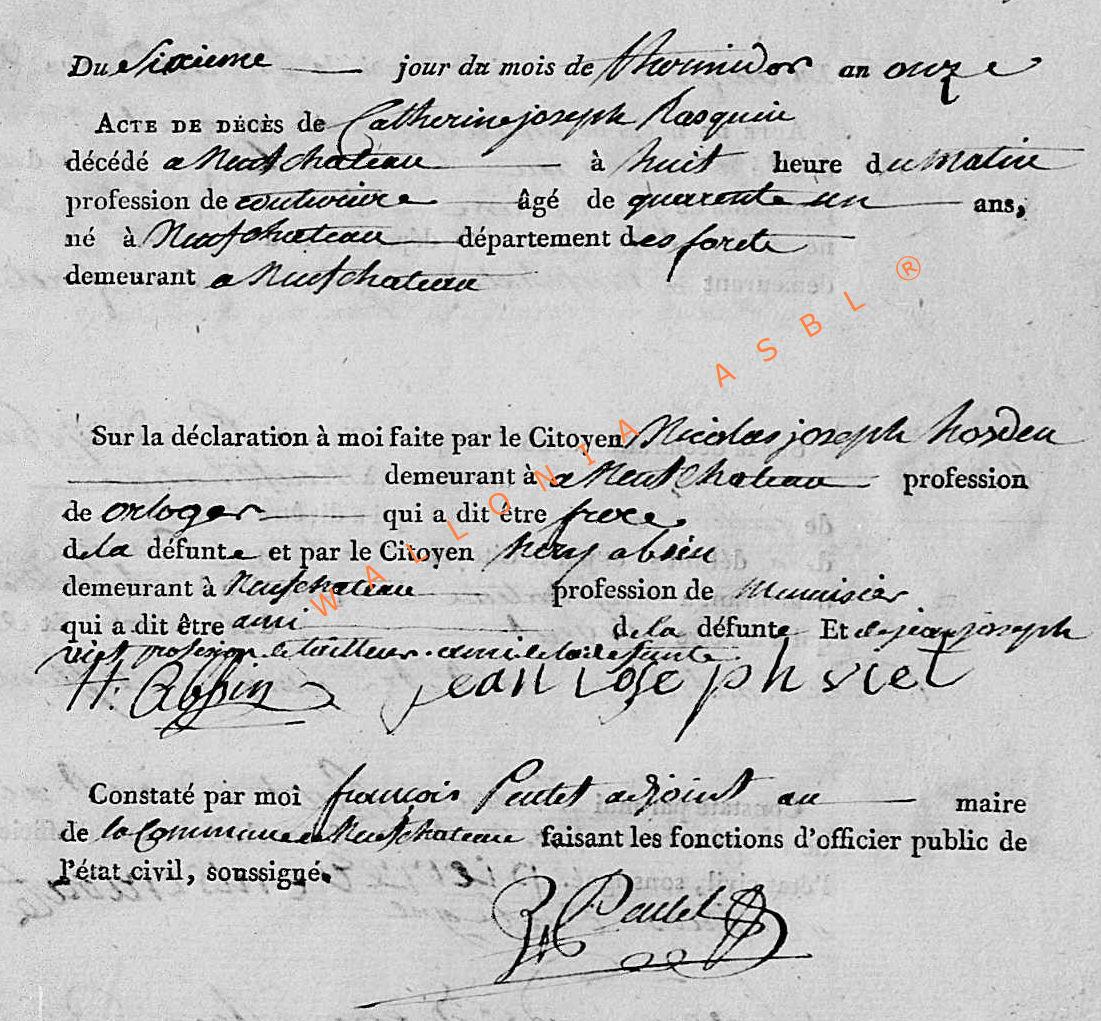 Du Sixieme jour du mois de thermidor an onze
ACTE DE DÉCÈS de Catherine joseph Rasquin
décédé a Neufchateau à huit heure du Matin
profession de couturiere âgé de quarente un ans,
né à Neufchateau département des forets
demeurant a Neufchateau
Sur la déclaration à moi faite par le Citoyen Nicolas joseph
demeurant à a Neufchateau profession
de orloger qui a dit être frere
de la défunte et par le Citoyen absin
demeurant à Neufchateau profession de Menuisier
qui a dit être ami de la défunte Et de jean joseph
viet profesion de tailleur ami de la defunte
H. Absin jean Joseph viet
Constaté par moi françois Pautet adjoint au maire
de la Commune de Neufchateau faisant les fonctions d'officier public de
l'état civil, soussigné.
Pautet
WALLONIA ASBL ®